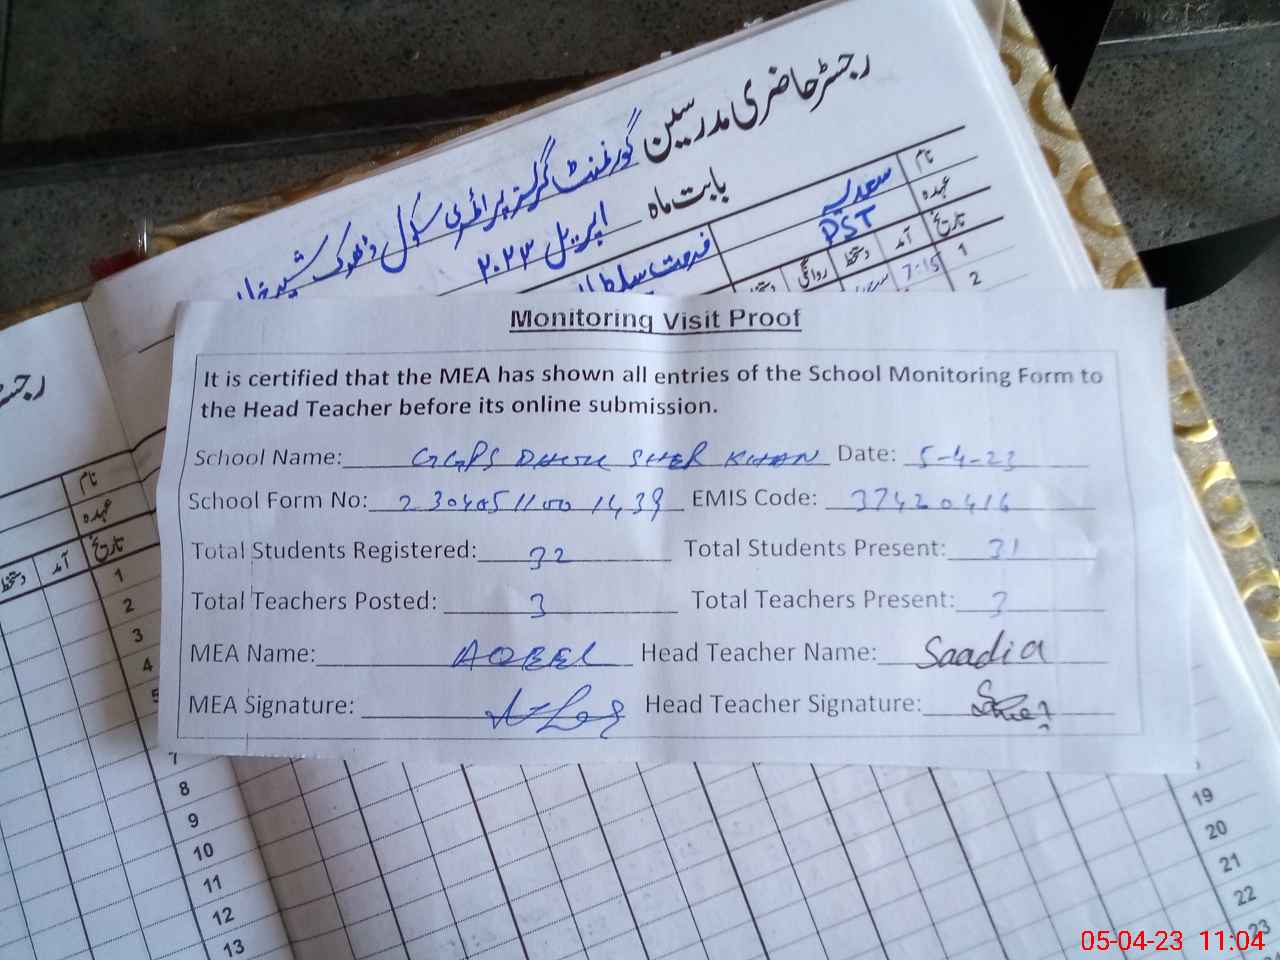 رجسٹر حاضری مدرسین گورنمنٹ گرلز پرائمری سکول ڈھوک شیر خان
بابت ماہ اپریل ۲۰۲۳
نام سعدیہ فرحت سلطانہ
عہدہ PST
تاریخ آمد دستخط روانگی دستخط
1 7:15
2
Monitoring Visit Proof
It is certified that the MEA has shown all entries of the School Monitoring Form to
the Head Teacher before its online submission.
School Name: GGPS DHOK SHER KHAN Date: 5-4-23
School Form No: 2304051100 1439 EMIS Code: 37420416
Total Students Registered: 32 Total Students Present: 31
Total Teachers Posted: 3 Total Teachers Present: 3
MEA Name: AQEEL Head Teacher Name: Saadia
MEA Signature: Head Teacher Signature:
نام
عہدہ
تاریخ آمد دستخط
1
2
3
4
5
7
8
9
10
11
12
13
19
20
21
22
23
24
05-04-23 11:04